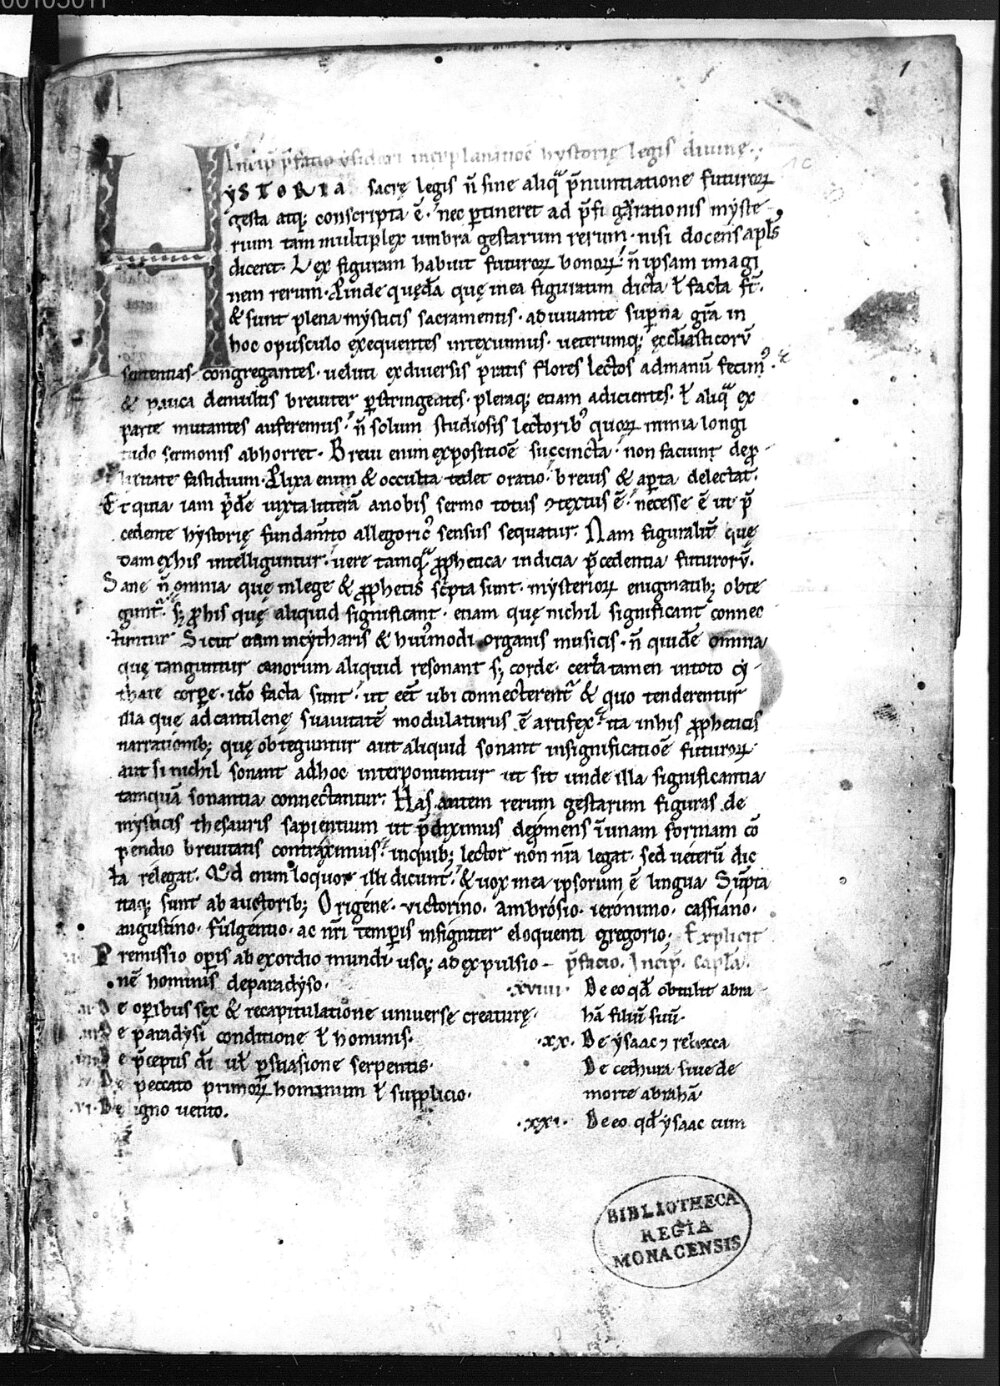 1
Incip p̄fatio ysidori in explanationē hystorię legis divinę.
HYSTORIA sacrę legis ñ sine aliq̄ p̄nuntiatione futuroꝝ
gesta atq; conscripta ē. nec ꝑtineret ad
rium tam multiplex umbra gestarum rerum. nisi docens apl's
diceret. Lex figuram habuit futuroꝝ bonoꝝ. ñ ipsam imagi
nem rerum. Ꝓinde quędā quę in ea figuratim dicta ł facta st̄.
& sunt plena mysticis sacramentis. adiuvante superna gr̄a in
hoc opusculo exequentes intexuimus. veterumq; ęccl̄iasticorū
sententias congregantes. veluti ex diversis pratis flores lectos ad manū fecim'.
& pauca de multis breviter ꝑstringentes. pleraq; etiam adicientes. ł aliq̄ ex
parte mutantes auferemus. ñ solum studiosis lectorib' quoꝝ nimia longi
tudo sermonis abhorret. Brevi enim expositiōe succincta. non faciunt de ꝓ
lixitate fastidium. Ꝓlixa enim & occulta tedet oratio. brevis & aperta delectat.
Et quia iam pridē iuxta litterā a nobis sermo totus ɔtextus ē. necesse ē ut p̄
cedente hystorię fundam̄to allegoric' sensus sequatur. Nam figuralit̄ quę
dam ex his intelliguntur. vere tamq̄ ꝓphetica indicia p̄cedentia futurorū.
Sane ñ omnia quę in lege & ꝓphetis sc̄pta sunt. mysterioꝝ enigmatib; obte
gunt̄. sꝫ ꝓ his quę aliquid significant. etiam quę nichil significant connec
tuntur. Sicut enim in cytharis & hui'modi organis musicis. ñ quidē omnia
quę tanguntur canorum aliquid resonant sꝫ cordę. cetera tamen in toto cy
tharę corꝑe. idō facta sunt. ut eēt ubi connecterent̄ & quo tenderentur
illa quę ad cantilenę suavitatē modulaturus ē artifex. ita in his ꝓpheticis
narrationib; quę obteguntur aut aliquid sonant in significatiōe futuroꝝ
aut si nichil sonant ad hoc interponuntur ut sit unde illa significantia
tamquā sonantia connectantur. Has autem rerum gestarum figuras de
mysticis thesauris sapientium ut p̄diximus depromens in unam formam cō
pendio brevitatis contraximus. in quib; lector non nr̄a legat. sed veterū dic
ta relegat. Qd' enim loquor illi dicunt. & vox mea ipsorum ē lingua Sūpta
itaq; sunt ab auctorib; Origene. victorino. ambrosio. ieronimo. cassiano.
augustino. fulgentio. ac nr̄i temporis insigniter eloquenti gregorio. Explicit
p̄facio. Incip̄. capl̄a.
Premissio operis ab exordio mundi. usq; ad expulsio
nē hominis de paradyso.
.ii. De oꝑibus sex & recapitulatione universe creaturę.
.iii. De paradysi conditione ł hominis.
.iiii. De p̄ceptis d̄i vł ꝑsuasione serpentis.
.v. De peccato primoꝝ hominum ł supplicio.
.vi. De ligno vetito.
.xviiii. De eo qd' obtulit abra
hā filiū suū.
.xx. De ysaac ɔ rebecca
De cethura sive de
morte abrahā.
.xxi. De eo qd' ysaac cum
BIBLIOTHECA
REGIA
MONACENSIS